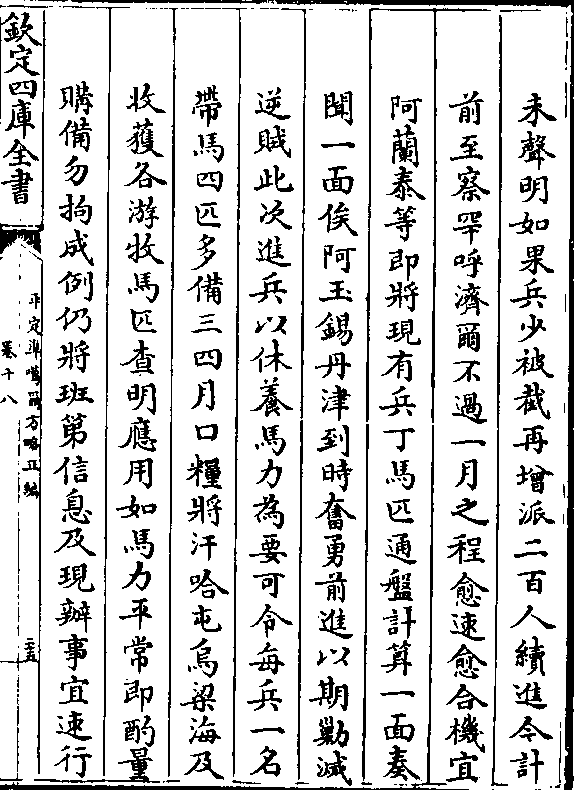 未聲明如果兵少被截再增派二百人續進今計
前至察罕呼濟爾不過一月之程愈速愈合機宜
阿蘭泰等即將現有兵丁馬匹通盤計算一面奏
聞一面俟阿玉錫丹津到時奮勇前進以期勦滅
逆賊此次進兵以休養馬力為要可令每兵一名
帶馬四匹多備三四月口糧將汗哈屯烏梁海及
收獲各游牧馬匹查明應用如馬力平常即酌量
購備勿拘成例仍將班第信息及現辦事宜速行
欽定四庫全書
平定準噶爾方略正編
卷十八
二十五